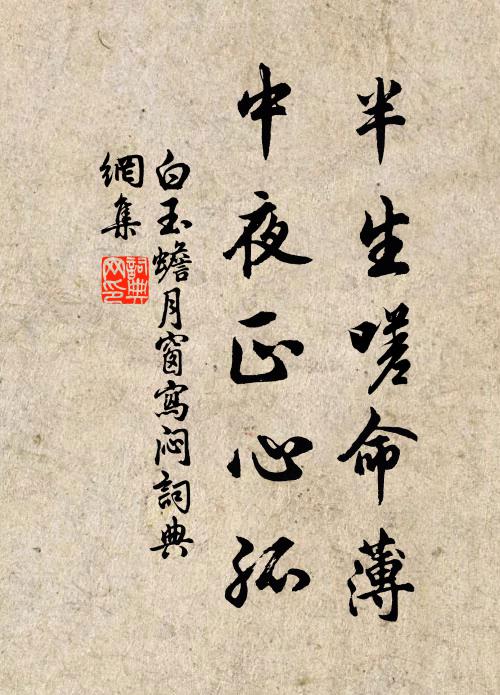 半生嗟命薄
中夜正心孤
白玉蟾月窗寫悶詞典
網集
詞典網印